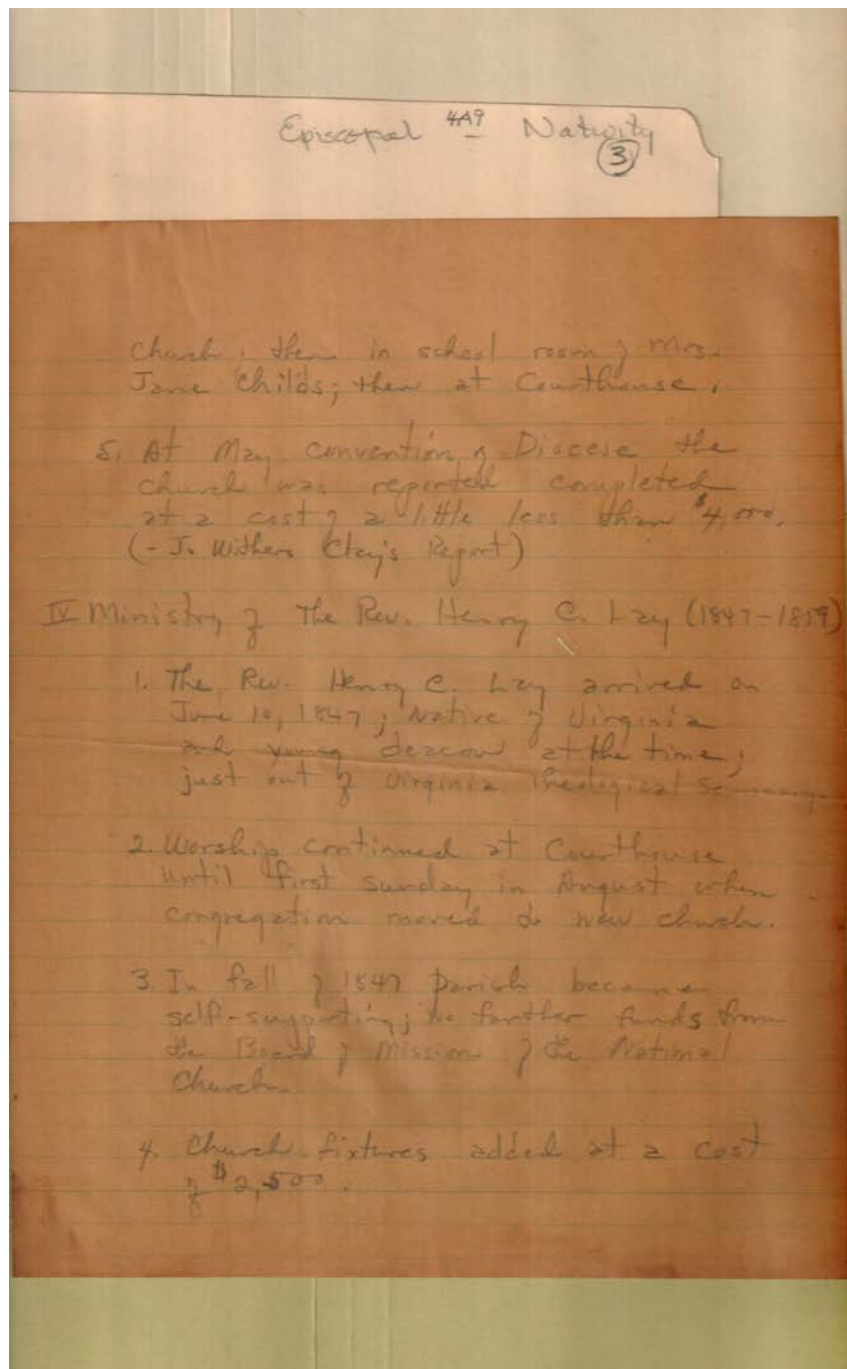 Episcopal 4A9 Nativity
3
Church; then in school room of Mrs.
Jane Childs; then at Courthouse.
5. At May convention of Diocese the
church was reported completed
at a cost of a little less than $4,000.
(- J. Withers Clay's Report)
IV Ministry of The Rev. Henry C. Lay (1847-1859)
1. The Rev. Henry C. Lay arrived on
June 10, 1847; Native of Virginia
and young deacon at the time;
just out of Virginia Theological Seminary
2. Worship continued at Courthouse
until first Sunday in August when
congregation moved to new church.
3. In fall of 1847 parish became
self-supporting; no further funds from
the Board of Mission of the National
Church.
4. Church fixtures added at a cost
of $2,500.